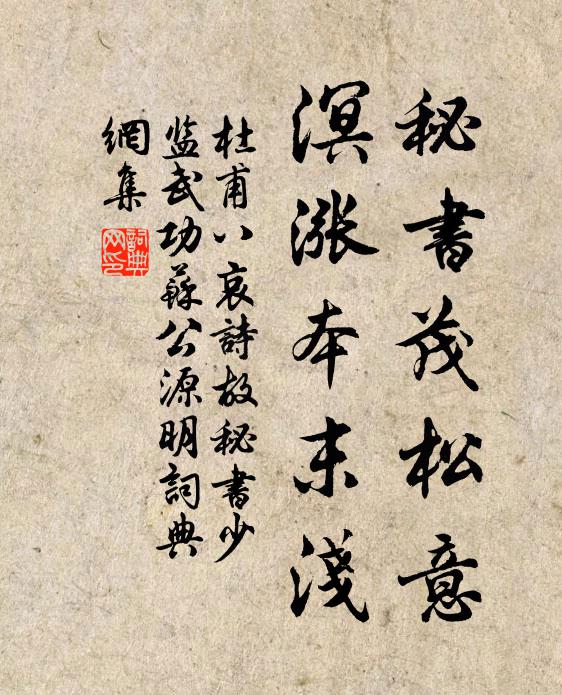 秘書茂松意
溟漲本末淺
杜甫八哀詩故秘書少
监武功蘇公源明詞典
網集
詞典
网印